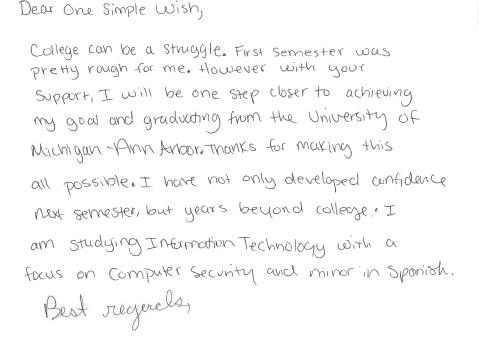 Dear One Simple Wish,
College can be a struggle. First semester was
pretty rough for me. However with your
support, I will be one step closer to achieving
my goal and graduating from the University of
Michigan-Ann Arbor. Thanks for making this
all possible. I have not only developed confidence
next semester, but years beyond college. I
am studying Information Technology with a
focus on Computer Security and minor in Spanish.
Best regards,